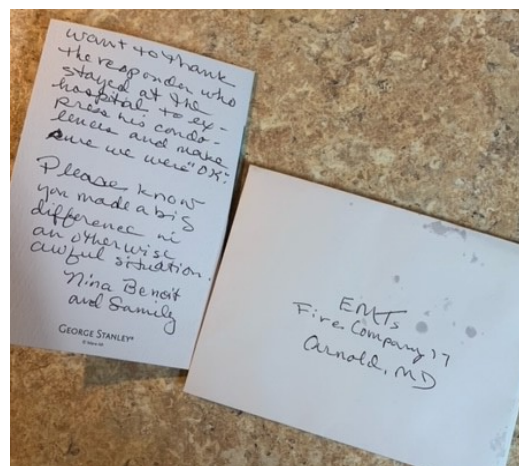 want to thank
the responder who
stayed at the
hospital to ex-
press his condo-
lences and make
sure we were "OK".
Please know
you made a big
difference in
an otherwise
awful situation.
Nina Benoit
and Family
GEORGE STANLEY
EMTs
Fire Company 17
Arnold, MD